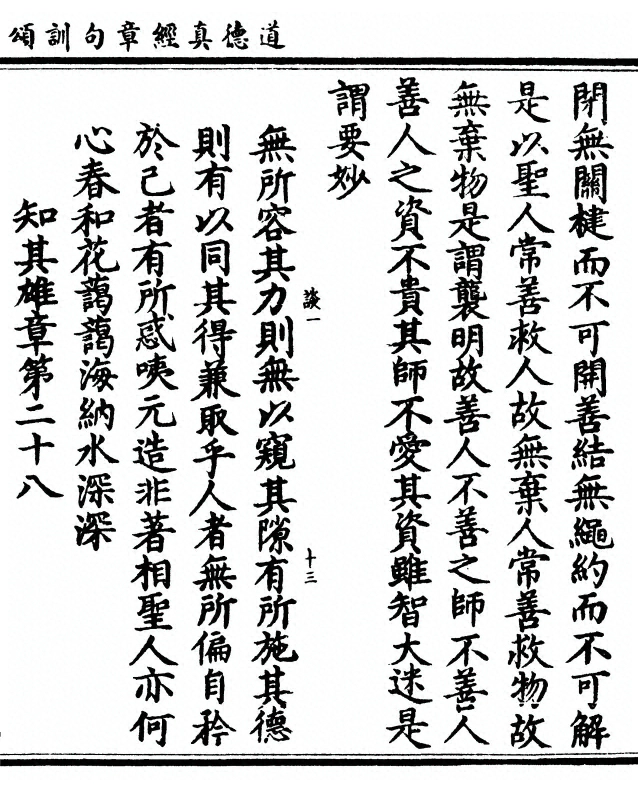 道德真經章句訓頌
閉無關楗而不可開善結無繩約而不可解
是以聖人常善救人故無棄人常善救物故
無棄物是謂襲明故善人不善之師不善人
善人之資不貴其師不愛其資雖智大迷是
謂要妙
談一
十三
無所容其力則無以窺其隙有所施其德
則有以同其得兼取乎人者無所偏自矜
於己者有所惑咦元造非著相聖人亦何
心春和花藹藹海納水深深
知其雄章第二十八